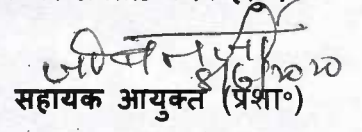 8/6/2020
सहायक आयुक्त (प्रशा॰)